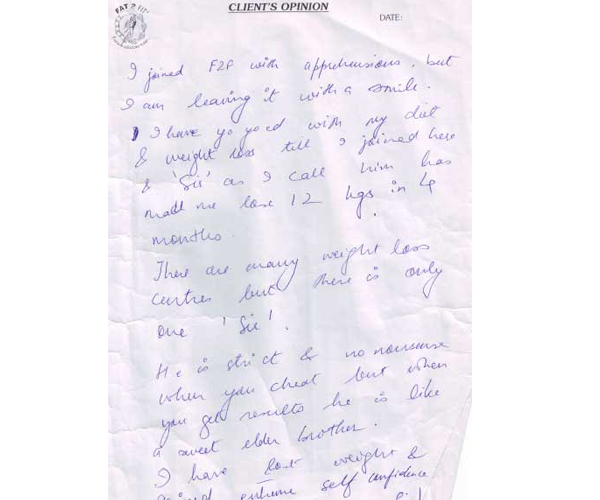 CLIENT'S OPINION
DATE:
FAT 2 FIT
I joined F2F with apprehensions, but
I am leaving it with a smile.
I have yo yo ed with my diet
& weight loss till I joined here
& 'Sir' as I call him has
made me lose 12 kgs in 4
months.
There are many weight loss
centres but there is only
one 'Sir'.
He is strict & no nonsense
when you cheat but when
you get results he is like
a sweet elder brother.
I have lost weight &
gained extreme self confidence